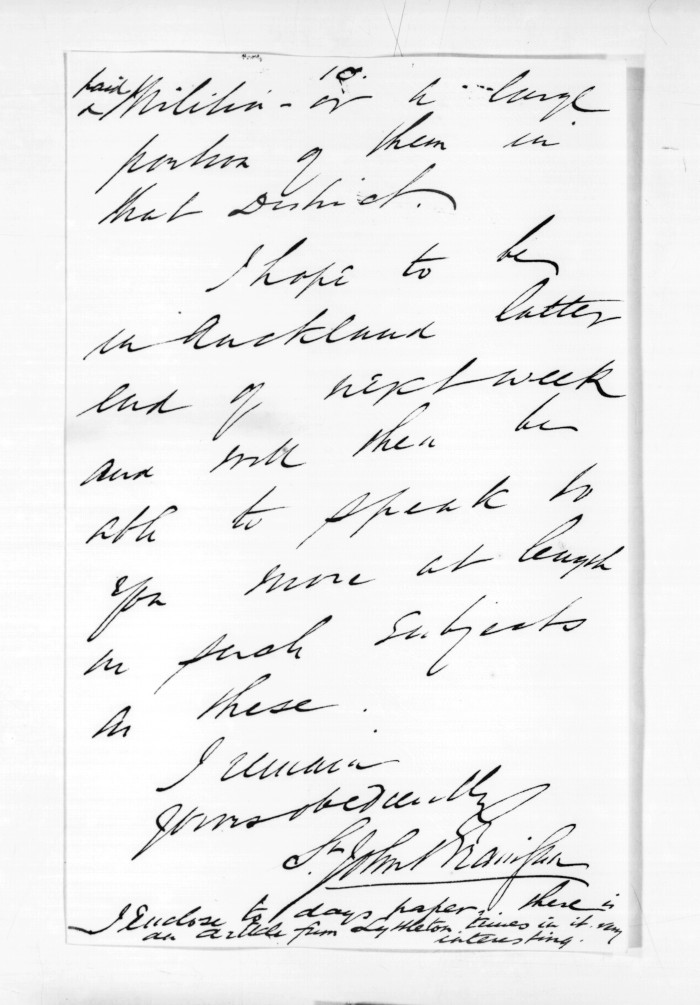 10.
paid
Militia - or a large
portion of them in
that District.
I hope to be
in Auckland latter
end of next week
and will then be
able to speak to
you more at length
on such subjects
as these.
I remain
Yours obediently
St. John Branigan
I Enclose to days paper, there is
an article from Lyttleton Times in it. very
interesting.